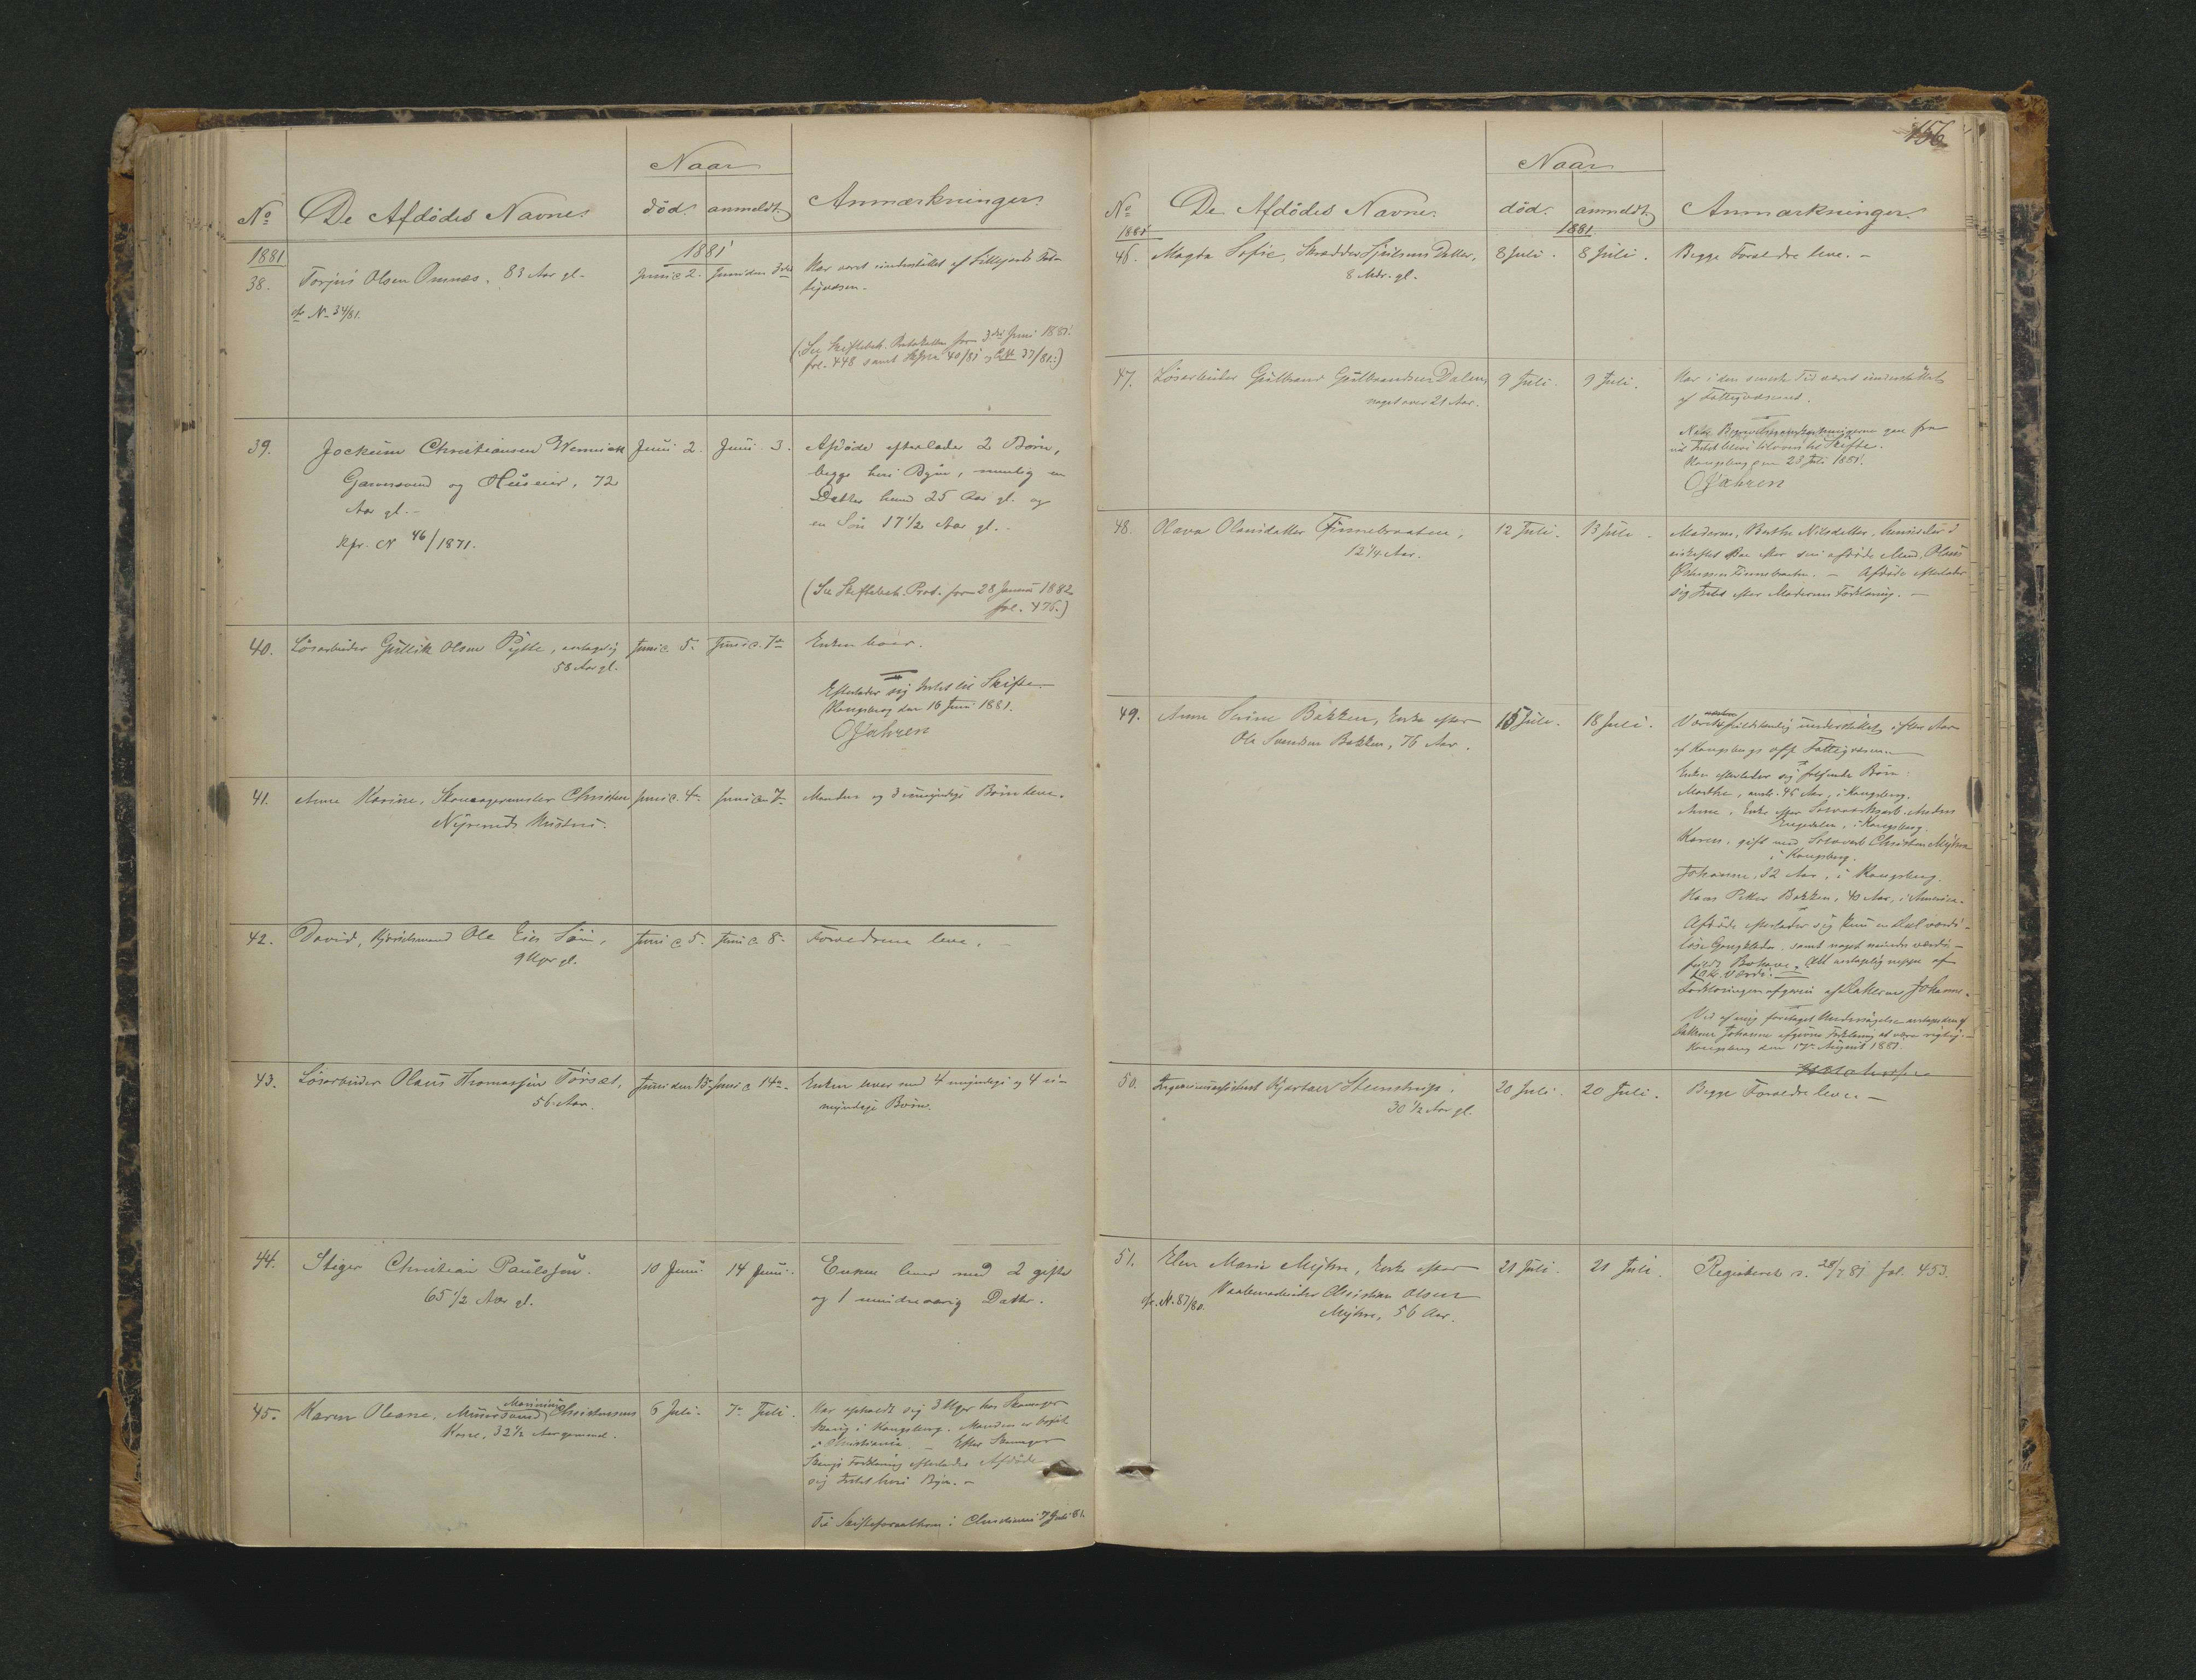 Naar
No De Afdødes Navne. død. anmeldt. Anmærkninger.
1881 1881
38. Torjus Olsen Omnæs. 83 Aar gl. Juni 2. Juni den 3die Har været understøttet af Fat-
tigvæsen.
cfr No 34/81.
(Se Skiftebeh. Protokollen for 3die Juni 1881.
fol. 448 samt 40/81 og 37/81.)
39. Jockum Christiansen Wennick Juni 2. Juni 3. Afdøde efterlader 2 Børn,
begge her i Byen, nemlig en
Garversvend og Huseier, 72
Datter 25 Aar gl. og
Aar gl.
en Søn 17 1/2 Aar gl.
Kfr. N 46/1871.
(Se Skiftebeh. Prot. for 28 Januar 1882
fol. 476.)
40. Løsarbeider Gullik Olsen Pytte, antagelig Juni 5. Juni 7de Enken lever.
58 Aar gl.
Efterlader sig Intet til Skifte.
Kongsberg den 16 Juni 1881.
OJahren
41. Anne Karine, Skomagermester Christian Juni 4. Juni 7. Manden og 3 umyndige Børn leve.
Nyrends Hustru.
42. David, Ole Eies Søn, Juni 5. Juni 8. Forældrene leve.
9 Uger gl.
43. Løsarbeider Olaus Thomassen Torsæt, Juni den 13. Juni 14de Enken lever med 4 myndige og 4 u-
56 Aar. myndige Børn.
44. Stiger Christian Paulssen. 10 Juni. 14 Juni. Enken lever med 2 gifte
65 1/2 Aar gl. og 1 mindreaarig Datter.
45. Karen Oleane, Murersvend Christensens 6 Juli. 7de Juli. Har opholdt sig 3 Uger hos Skomager
Kone, 32 1/2 Aar gammel. i Kongsberg. Manden er bosat
i Christiania. Efter Skomager
Forklaring efterlader Afdøde
sig Intet her i Byen.
Til Skifteforvalteren i Christiania 7 Juli 81.
156
Naar
No De Afdødes Navne. død. anmeldt. Anmærkninger.
1881 1881.
46. Magda Sofie, Skrædder Datter, 8 Juli. 8 Juli. Begge Forældre leve.
8 Mdr. gl.
47. Løsarbeider Gulbrand Gulbrandsen Dalen 9 Juli. 9 Juli. Har i den seneste Tid været understøttet
noget over 21 Aar. af Fattigvæsenet.
Skifte.
Kongsberg den 23 Juli 1881.
OJahren
48. Olava Olausdatter Finnebraaten, 12 Juli. 13 Juli. Moderen, Berthe Nilsdatter, hensidder i
12 1/4 Aar. uskiftet Bo efter sin afdøde Mand, Olaus
Finnebraaten. Afdøde efterlader
sig Intet efter Moderens Forklaring.
49. Anne Serine Bakken, Enke efter 15 Juli. 18 Juli. Været understøttet i flere Aar
Ole Svendsen Bakken, 76 Aar. af Kongsbergs Fattigvæsen.
Enken efterlader sig følgende Børn:
Marthe, 45 Aar, i Kongsberg.
Anne, Enke efter Anders
Engedalen, i Kongsberg.
Karen, gift med Christian Myhra
i Kongsberg.
Johanne, 32 Aar, i Kongsberg.
Hans Petter Bakken, 40 Aar, i America.
Afdøde efterlader sig kun en Del værdi-
løse Gangklæder, samt noget mindre værdi-
fuldt Bohave, Alt antagelig neppe af
10 Kr. Værdi.
Forklaringen afgiven af Datteren Johanne.
Ved af mig foretaget Undersøgelse antages den af
Datteren Johanne afgivne Forklaring at være rigtig.
Kongsberg den 17de August 1881.
50. Kjartan Steenstrup, 20 Juli. 20 Juli. Begge Forældre leve.
30 1/2 Aar gl.
51. Elen Marie Myhre, Enke efter 21 Juli. 21 Juli. Registreret d. 28/7 81 fol. 453.
cfr. N. 87/80. Christian Olsen
Myhre, 56 Aar.